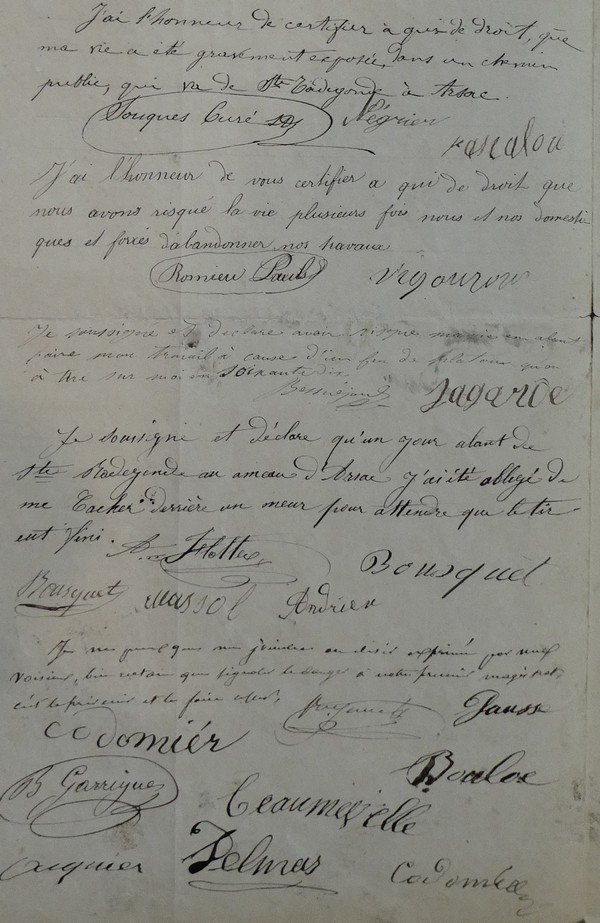 J'ai l'honneur de certifier à qui de droit, que
ma vie a été gravement exposée, dans un chemin
public, qui va de Ste Radegonde à Arsac.
Fouques Curé Négrier
J'ai l'honneur de vous certifier a qui de droit que
nous avons risqué la vie plusieurs fois nous et nos domesti
ques et forcés d'abandonner nos travaux
Romieu Paul Vigouroux
Je soussigne et declare avoir risque ma vie en alant
faire mon travail à cause d'un feu de peloton qu'on
à tire sur moi en soixante dix
Lagarde
Je soussigne et déclare qu'un jour alant de
Ste Radegonde au ameau d'Arsac j'ai été obligé de
me cacher derrière un meur pour attendre que le tir
eut fini.
Bousquet
Bousquet Massol Andrieu
Je ne puis que me joindre au désir exprimé par mes
voisins, bien certain que signaler le danger à notre premier magistrat,
c'est le prévenir et le faire cesser.
Gausse
Codomiér
B Garrigues Bouloc
Ceaumezelle
Delmas